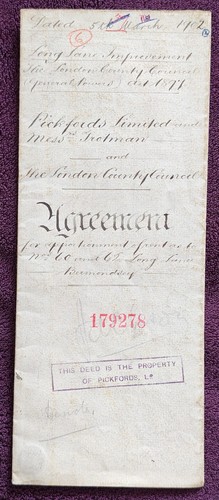 Dated 5th March 1902
6
Long Lane Improvement
The London County Council
(General Powers) Act 1899
Pickfords Limited and
Messrs Trotman
and
The London County Council
Agreement
for apportionment of rent as to
Nos 60 and 62 Long Lane
Bermondsey
179278
THIS DEED IS THE PROPERTY
OF PICKFORDS, LD